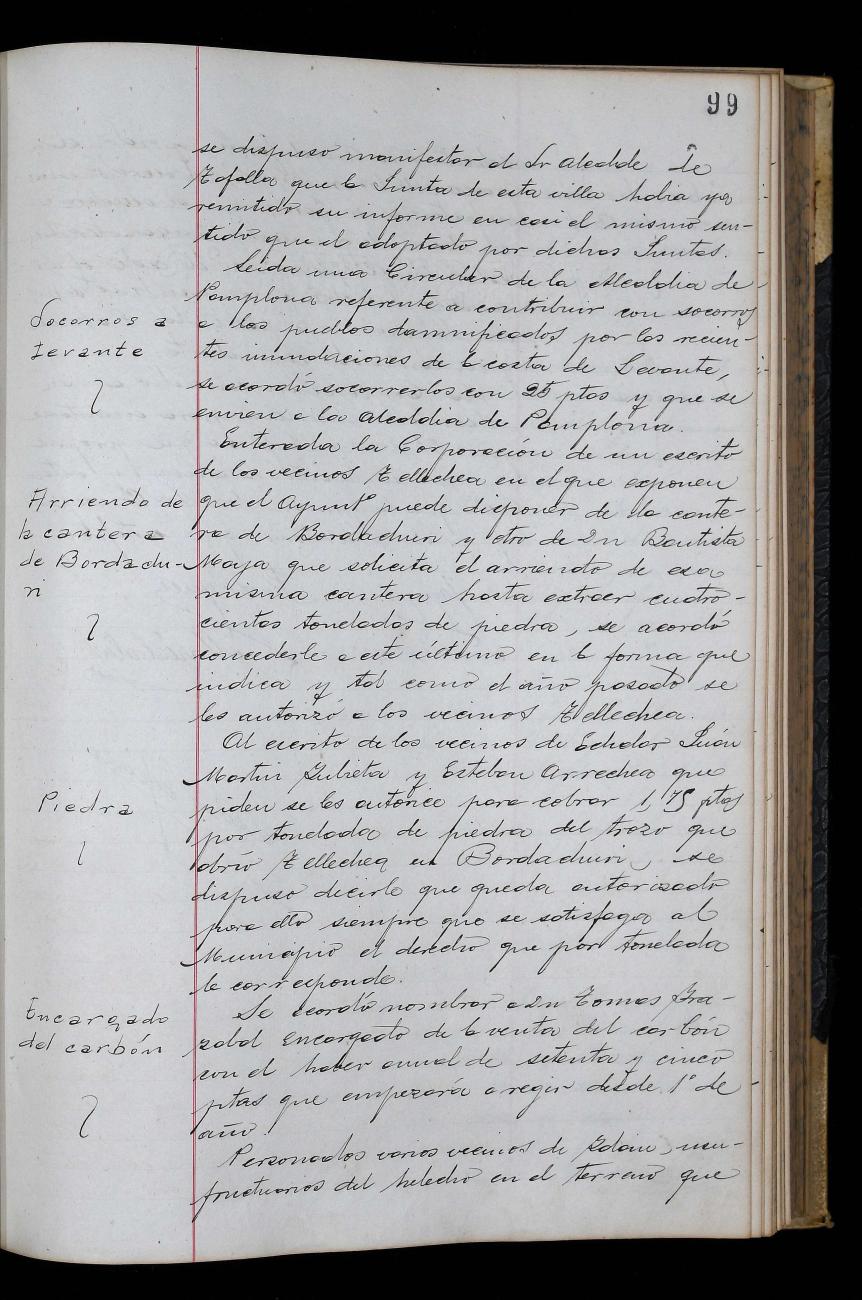 99
se dispuso manifestar al Sr Alcalde de
Tafalla que la Junta de esta villa habia ya
remitido su informe en casi el mismo sen-
tido que el adoptado por dichas Juntas.
Leida una Circular de la Alcaldia de
Socorros a
Levante
Pamplona referente a contribuir con socorros
a los pueblos damnificados por las recien-
tes inundaciones de la costa de Levante,
se acordó socorrerlos con 25 ptas y que se
envien a la Alcaldia de Pamplona.
Enterada la Corporación de un escrito
de los vecinos Tellechea en el que exponen
Arriendo de
la cantera
de Bordachu-
ri
que el Ayuntº puede disponer de la cante-
ra de Bordachuri y otro de Dn Bautista
Maya que solicita el arriendo de esa
misma cantera hasta extraer cuatro-
cientas toneladas de piedra, se acordó
concederle a este último en la forma que
indica y tal como el año pasado se
les autorizó a los vecinos Tellechea.
Al escrito de los vecinos de Echalar Juan
Martin Zubieta y Esteban Arrechea que
Piedra
piden se les autorice para cobrar 1,75 ptas
por tonelada de piedra del trozo que
abrió Tellechea en Bordachuri, se
dispuso decirle que queda autorizado
para ello siempre que se satisfaga al
Municipio el derecho que por tonelada
le corresponde.
Encargado
del carbón
Se acordó nombrar a Dn Tomas Ira-
zabal encargado de la venta del carbón
con el haber anual de setenta y cinco
ptas que empezará a regir desde 1º de
año.
Personados varios vecinos de usu-
fructuarios del helecho en el terreno que